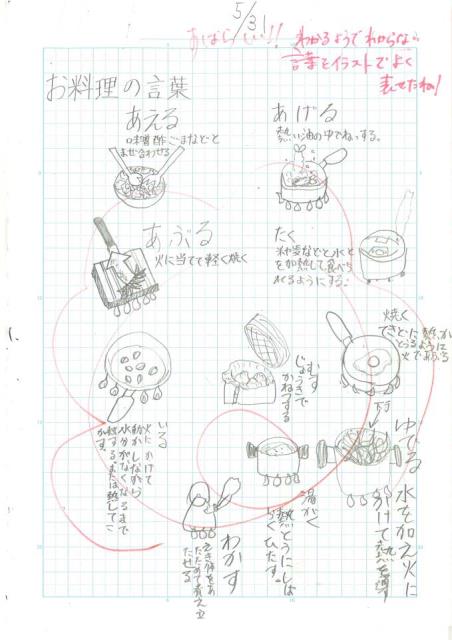 5/31
すばらしい!!
わかるようでわからない
言葉をイラストでよく
表せたね!
お料理の言葉
あえる
味噌酢ごまなどと
まぜ合わせる
あげる
熱い油の中でねっする。
あぶる
火に当てて軽く焼く
たく
米や豆などと水と
を加熱して食べら
れるようにする。
焼く
火であぶる
むす
じょうきで
かねつする
いる
火にかけて
動かしながら
水分がなくなるまで
ゆでる
水を加え火に
かけて
湯がく
熱とうにしば
らくひたす。
わかす